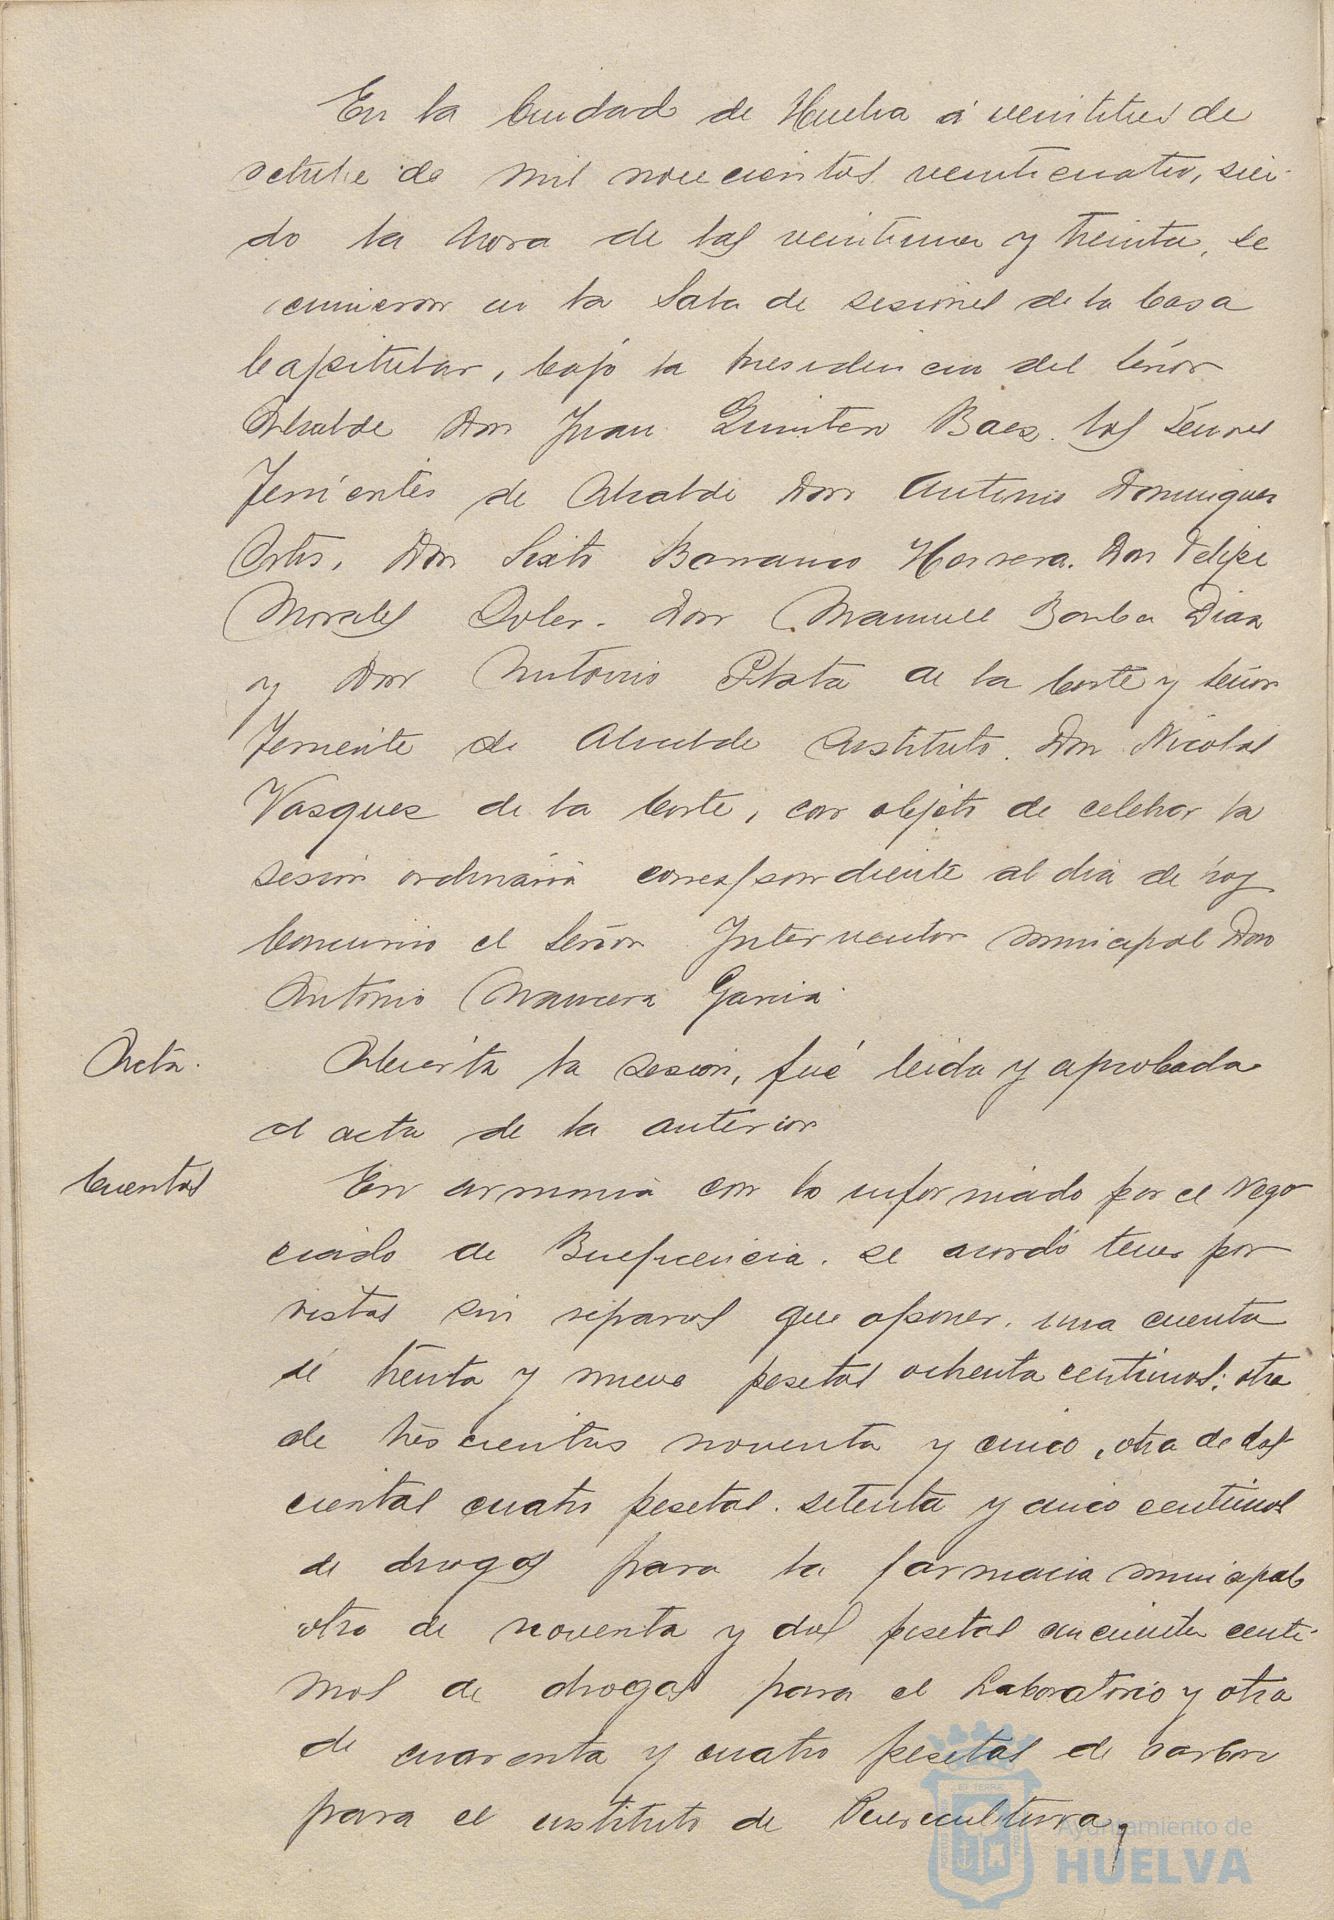 En la Ciudad de Huelva á veintitres de
octubre de mil novecientos veinticuatro, sien-
do la hora de las veintiuna y treinta, se
reunieron en la Sala de sesiones de la Casa
Capitular, bajo la presidencia del Señor
Alcalde Don Juan Quintero Baez. los Señores
Tenientes de Alcalde Don Antonio Dominguez
Ortis, Don Sixto Barranco Herrera. Don Felipe
Morales Soler. Don Manuel Barba Diaz
y Don Antonio Plata de la Corte y Señor
Teniente de Alcalde sustituto. Don Nicolas
Vasquez de la Corte, con objeto de celebrar la
sesión ordinaria correspondiente al dia de hoy
Concurrio el Señor Interventor municipal Don
Antonio Mancera Garcia.
Acta.
Abierta la sesion, fué leida y aprobada
el acta de la anterior
Cuentas
En armonia con lo informado por el Nego
ciado de Beneficencia. se acordó tener por
vistas sin reparos que oponer. una cuenta
de treinta y nueve pesetas ochenta centimos; otra
de trescientas noventa y cinco, otra de dos-
cientas cuatro pesetas. setenta y cinco centimos
de drogas para la farmacia municipal
otra de noventa y dos pesetas cincuenta centi-
mos de drogas para el Laboratorio y otra
de cuarenta y cuatro pesetas de carbon
para el instituto de Puericultura,
Ayuntamiento de
HUELVA